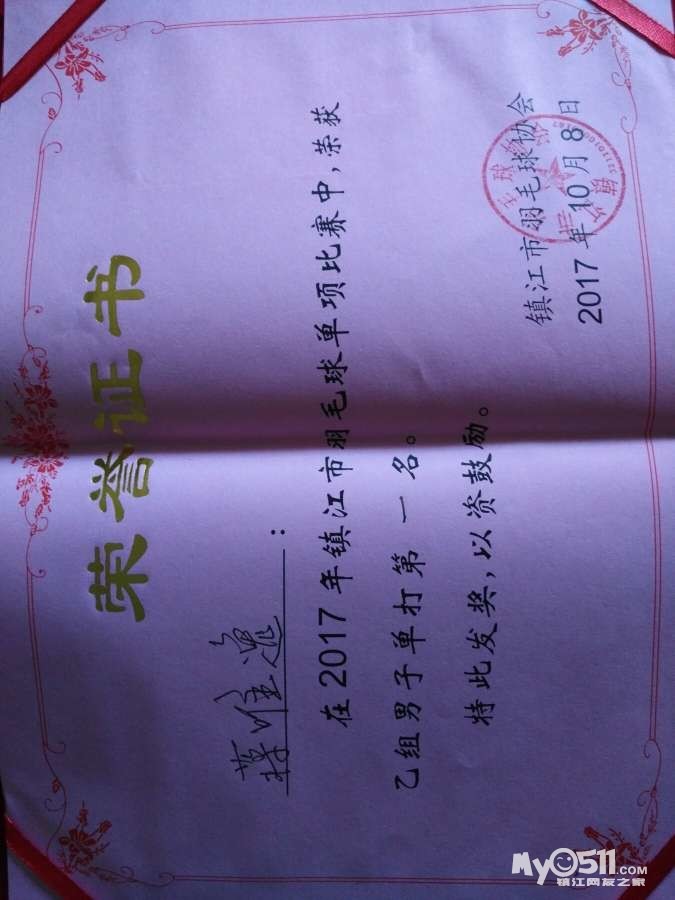 荣誉证书
蒋唯逸：
在2017年镇江市羽毛球单项比赛中，荣获
乙组男子单打第一名。
特此发奖，以资鼓励。
镇江市羽毛球协会
2017年10月8日
My0511.com
镇江网友之家